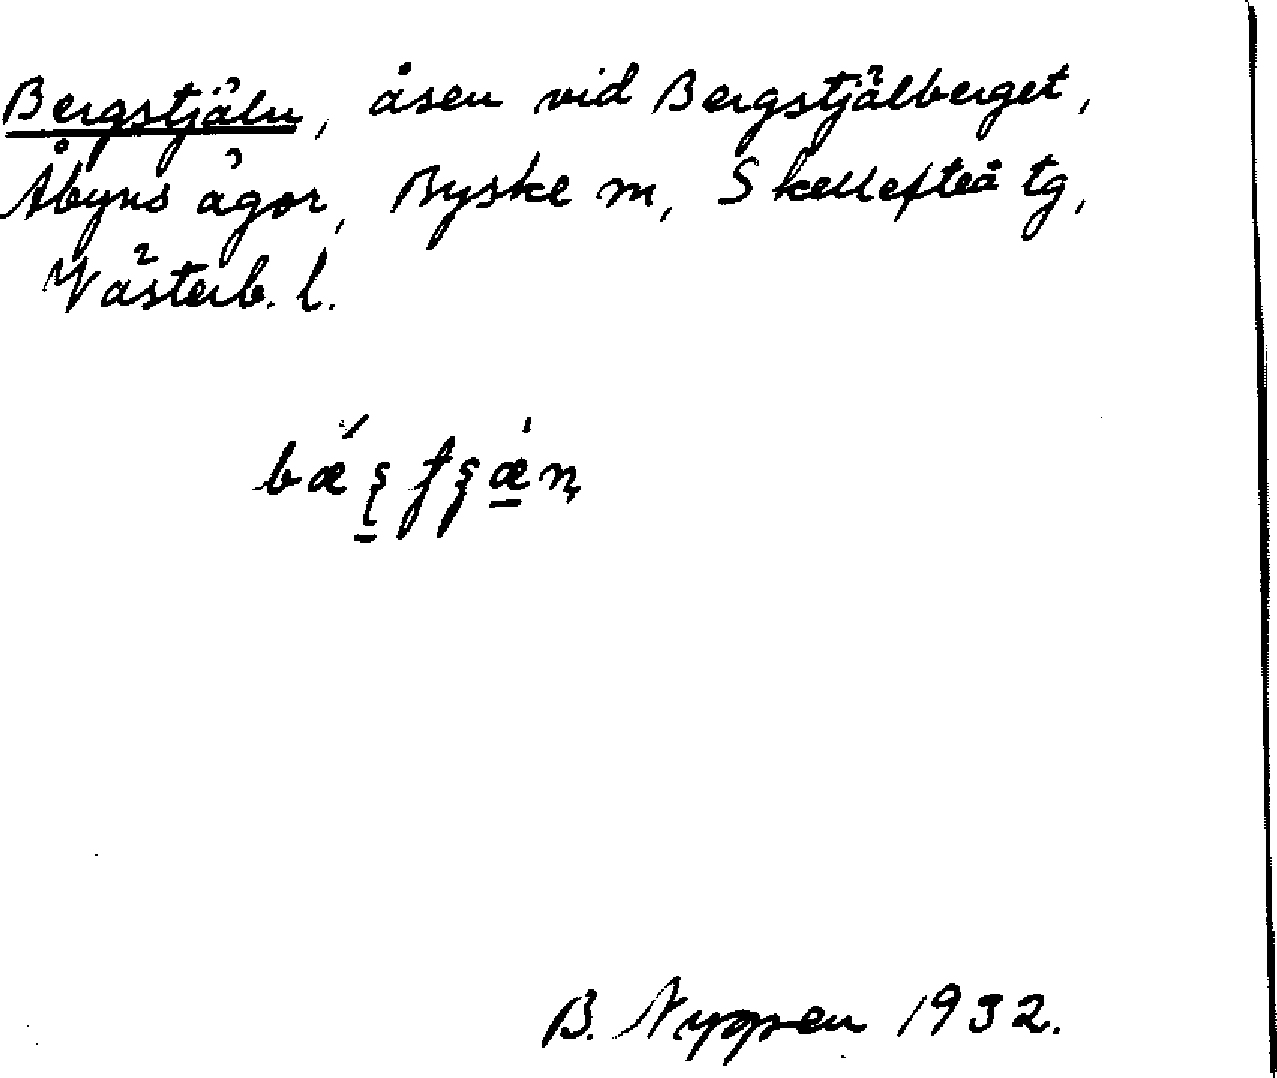 Bergstjäln, åsen vid Bergstjälberget,
Åbyns ägor, Byske sn, Skellefteå tg,
Västerb. l.
B. Nyppen 1932.